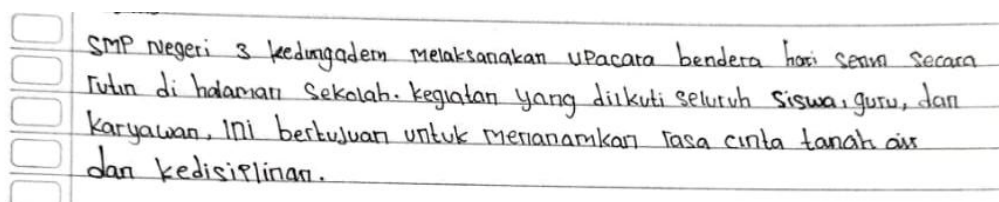 SMP Negeri 3 kedungadem melaksanakan upacara bendera hari senin secara
rutin di halaman sekolah. kegiatan yang diikuti seluruh siswa, guru, dan
karyawan, ini bertujuan untuk menanamkan rasa cinta tanah air
dan kedisiplinan.